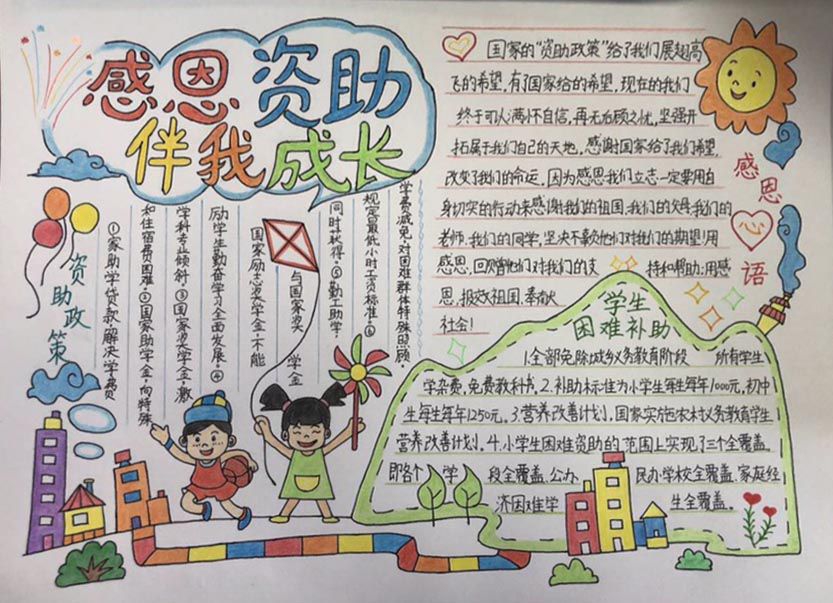 感恩资助
伴我成长
国家的“资助政策”给了我们展翅高
飞的希望,有了国家给的希望,现在的我们
终于可以满怀自信,再无后顾之忧,坚强开
拓属于我们自己的天地,感谢国家给了我们希望,
改变了我们的命运,因为感恩我们立志一定要用自
身切实的行动来感谢我们的祖国、我们的父母、我们的
老师、我们的同学,坚决不负他们对我们的期望!用
感恩,回赠他们对我们的支 持和帮助;用感
恩,报效祖国,奉献
社会!
感恩
心
语
资助政策
①家助学贷款·解决学费
和住宿费困难·②国家助学金·向特殊
学科专业倾斜·③国家奖学金·激
励学生勤奋学习全面发展·④
国家励志奖学金·不能
与国家奖 学金
同时获得·⑤勤工助学·
规定最低小时工资标准·⑥
学费减免·对困难群体特殊照顾·
学生
困难补助
1.全部免除城乡义务教育阶段 所有学生
学杂费,免费教科书.2.补助标准为小学生每生每年1000元,初中
生每生每年1250元.3.营养改善计划,国家实施农村义务教育学生
营养改善计划.4.小学生困难资助的范围上实现了三个全覆盖.
即各个 学 段全覆盖.公办、 民办学校全覆盖.家庭经
济困难学 生全覆盖.